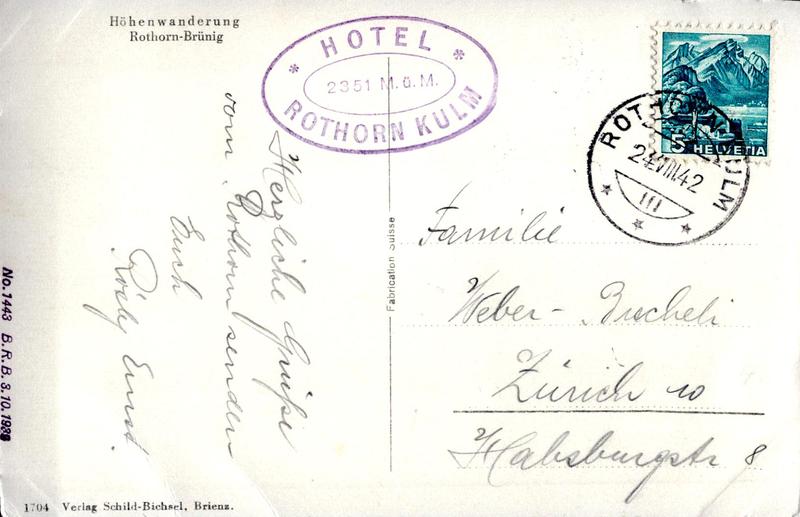 Höhenwanderung
Rothorn-Brünig
* HOTEL *
2351 M.ü.M.
ROTHORN KULM
HELVETIA
5
ROTHORN-KULM
24.VIII.42
Herzliche Grüsse
vom Rothorn senden
Euch
Ernst.
Fabrication Suisse
Familie
Weber-Bucheli
Zürich 10
Habsburgstr 8
No. 1443 B.R.B. 3.10.1939
1704 Verlag Schild-Bichsel, Brienz.